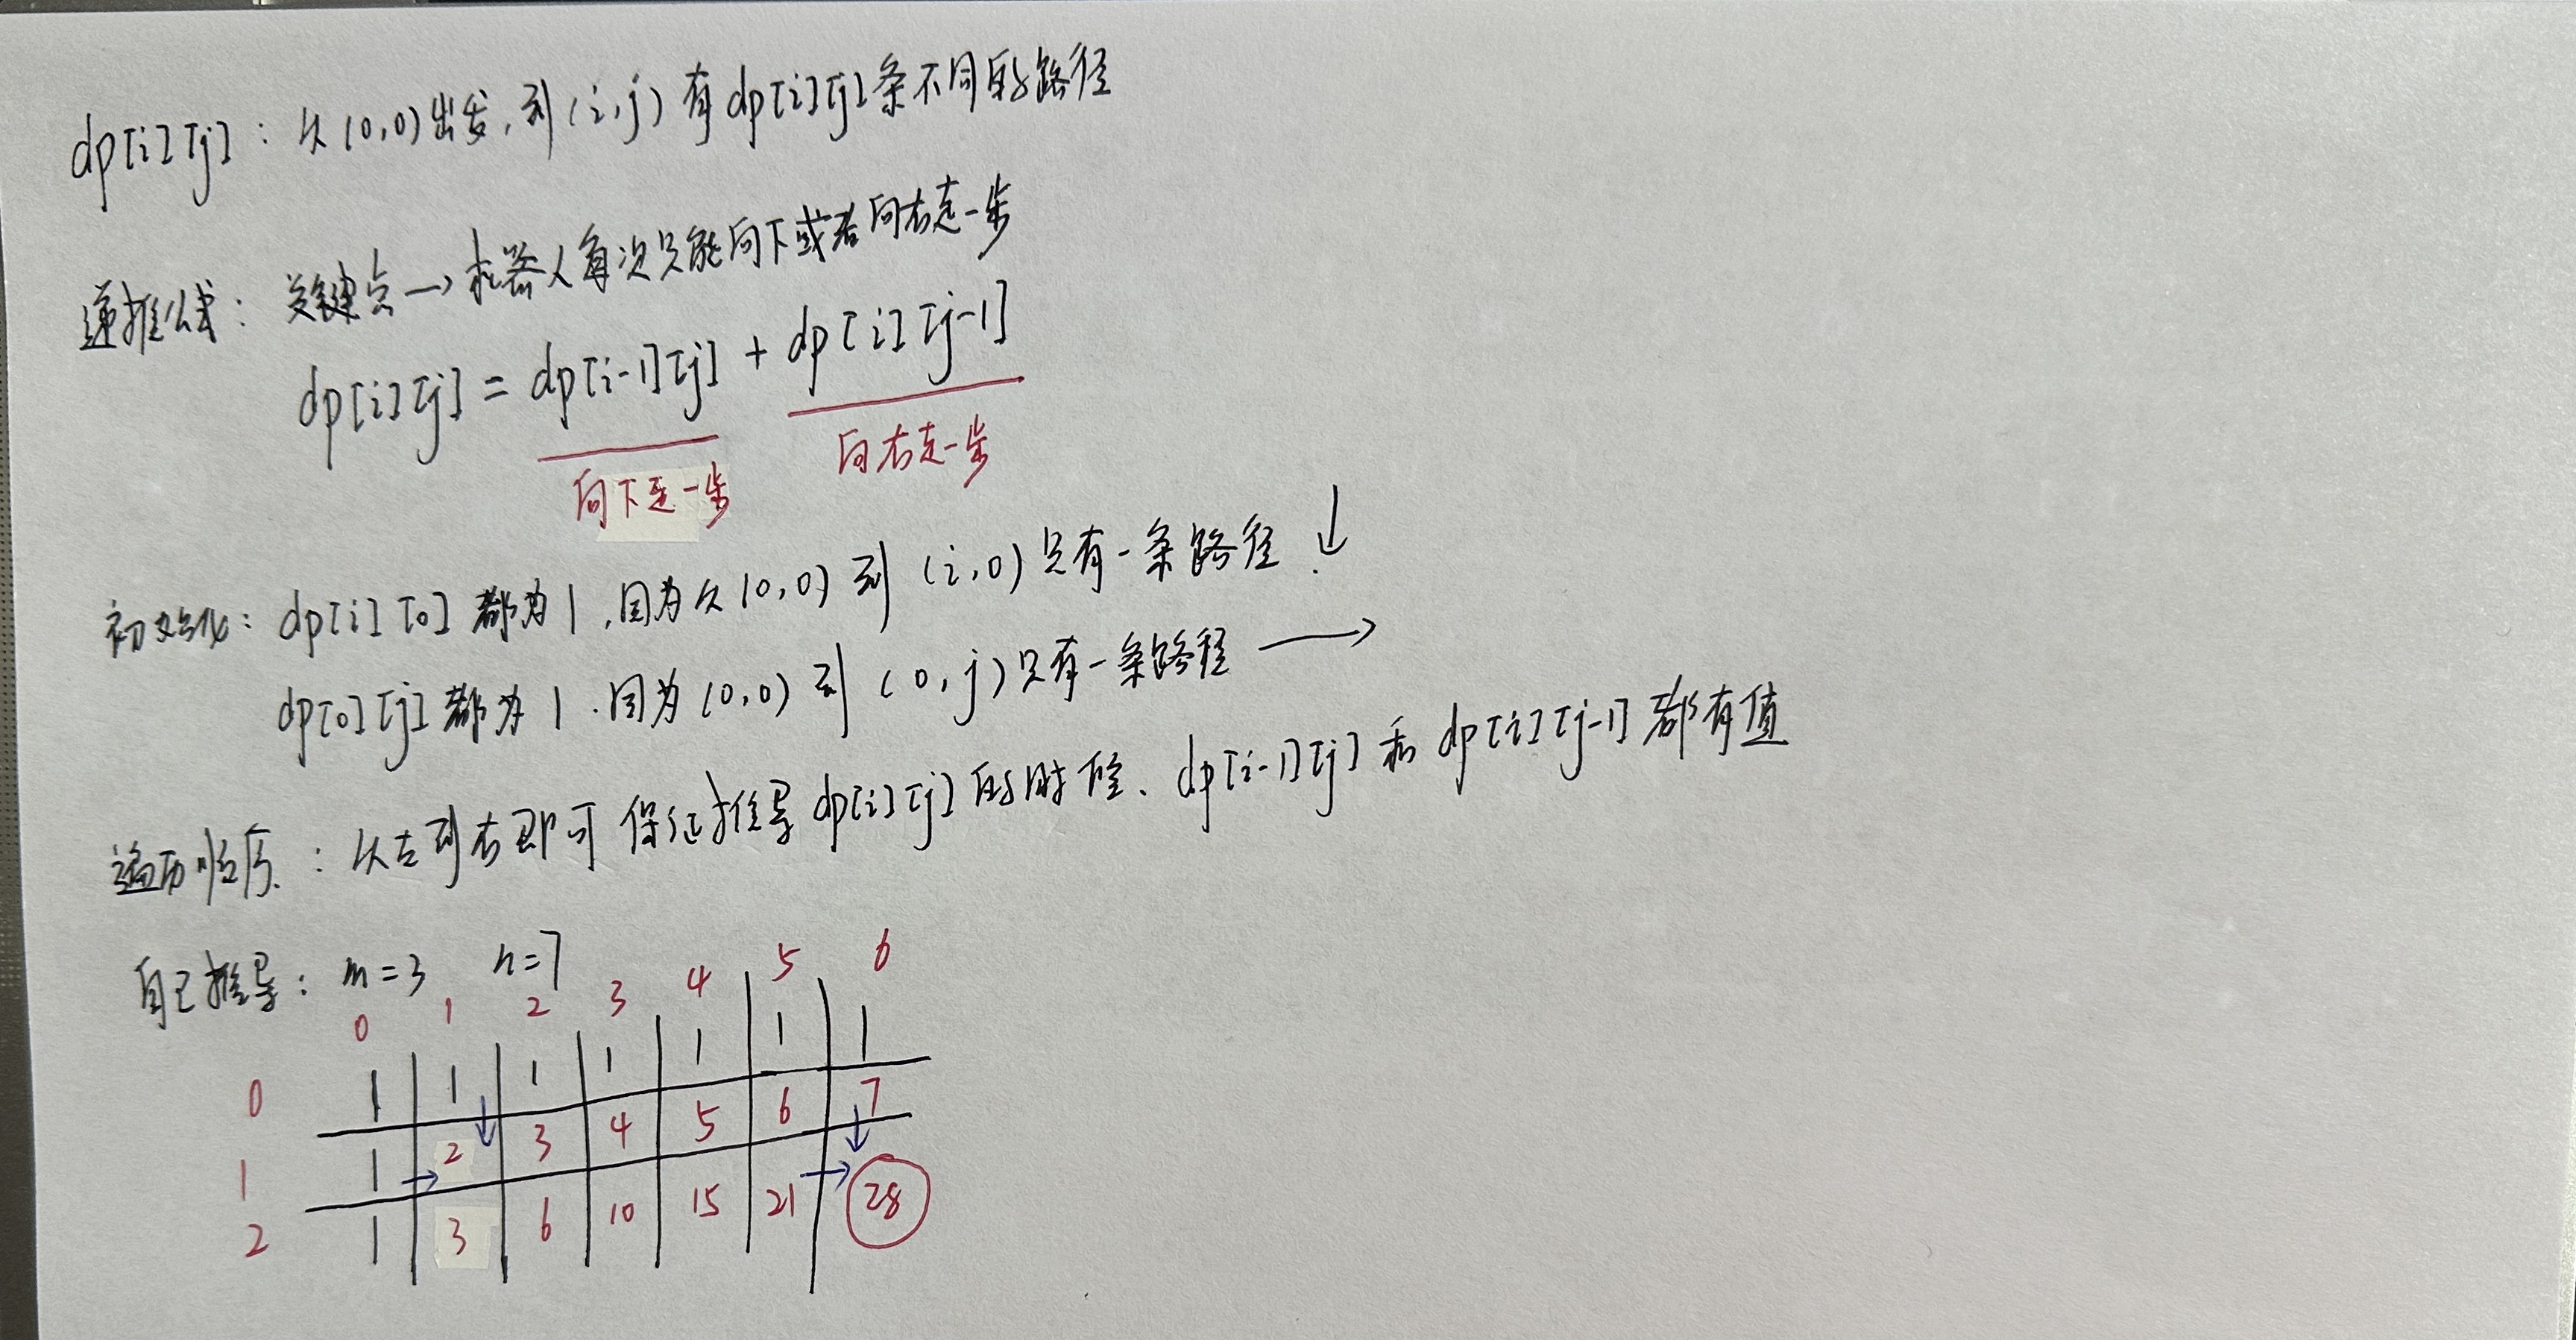 dp[i][j]：从(0,0)出发,到(i,j)有dp[i][j]条不同的路径
递推公式：关键点→机器人每次只能向下或者向右走一步
dp[i][j] = dp[i-1][j] + dp[i][j-1]
向下走一步 向右走一步
初始化：dp[i][0]都为1,因为从(0,0)到(i,0)只有一条路径.↓
dp[0][j]都为1.因为(0,0)到(0,j)只有一条路径→
遍历顺序：从左到右即可保证推导dp[i][j]的时候、dp[i-1][j]和dp[i][j-1]都有值
自己推导：m=3 n=7
0 1 2 3 4 5 6
0 1 1 1 1 1 1 1
1 1 2 3 4 5 6 7
2 1 3 6 10 15 21 28